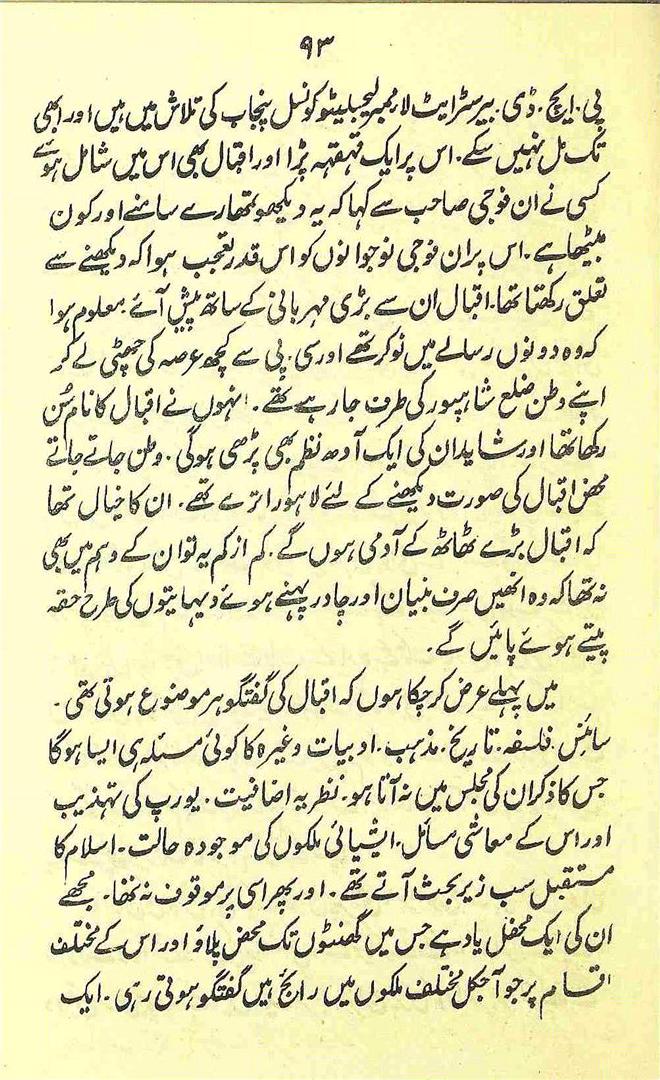 ۹۳
پی. ایچ. ڈی. بیرسٹرایٹ لا، ممبر لیجبلیٹو کونسل پنجاب کی تلاش میں ہیں اور ابھی
تک مل نہیں سکے. اس پر ایک قہقہہ پڑا اور اقبال بھی اس میں شامل ہوئے
کسی نے ان فوجی صاحب سے کہا کہ یہ دیکھو تمھارے سامنے اور کون
بیٹھا ہے. اس پر ان فوجی نوجوانوں کو اس قدر تعجب ہوا کہ دیکھنے سے
تعلق رکھتا تھا. اقبال ان سے بڑی مہربانی کے ساتھ پیش آئے. معلوم ہوا
کہ وہ دونوں رسالے میں نوکر تھے اور سی. پی سے کچھ عرصہ کی چھٹی لے کر
اپنے وطن ضلع شاہپور کی طرف جا رہے تھے. انہوں نے اقبال کا نام سُن
رکھا تھا اور شاید ان کی ایک آدھ نظم بھی پڑھی ہوگی. وطن جاتے جاتے
محض اقبال کی صورت دیکھنے کے لئے لاہور اترے تھے. ان کا خیال تھا
کہ اقبال بڑے ٹھاٹھ کے آدمی ہوں گے. کم از کم یہ تو ان کے وہم میں بھی
نہ تھا کہ وہ انھیں صرف بنیان اور چادر پہنے ہوئے دیہایتوں کی طرح حقہ
پیتے ہوئے پائیں گے.
میں پہلے عرض کر چکا ہوں کہ اقبال کی گفتگو ہر موضوع ہوتی تھی.
سائنس. فلسفہ. تاریخ. مذہب. ادبیات وغیرہ کا کوئی مسئلہ ہی ایسا ہوگا
جس کا ذکر ان کی مجلس میں نہ آتا ہو. نظریہ اضافیت. یورپ کی تہذیب
اور اس کے معاشی مسائل. ایشیائی ملکوں کی موجودہ حالت. اسلام کا
مستقبل سب زیر بحث آتے تھے. اور پھر اسی پر موقوف نہ تھا. مجھے
ان کی ایک محفل یاد ہے جس میں گھنٹوں تک محض پلاؤ اور اس کے مختلف
اقسام پر جو آجکل مختلف ملکوں میں رائج ہیں گفتگو ہوتی رہی. ایک